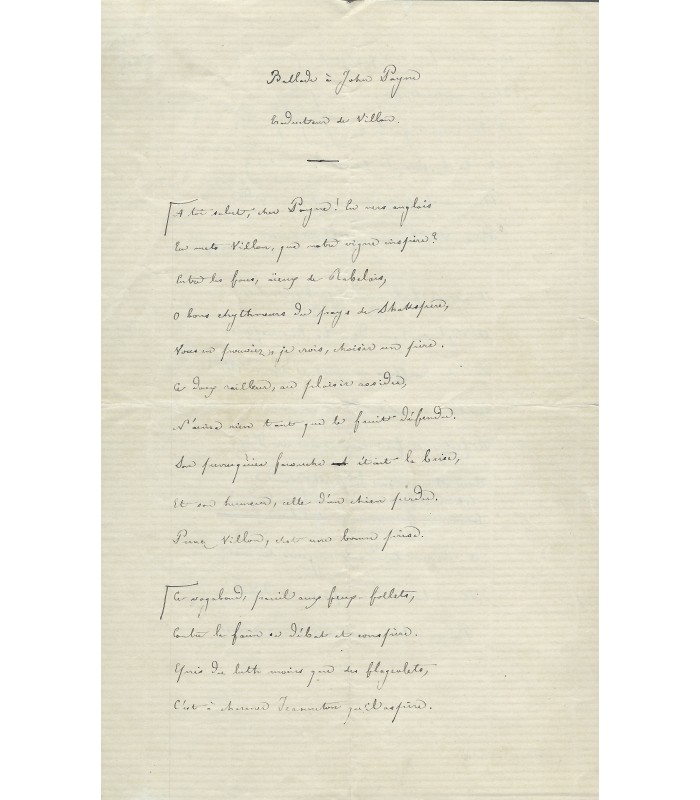 Ballade à John Payne
traducteur de Villon.
A toi salut, cher Payne! En vers anglois
Tu mets Villon, que notre vigne inspire?
Entre les fous, aïeux de Rabelais,
O bons rhythmeurs du pays de Shakspere,
Vous ne pouviez, je crois, choisir un pire.
Ce doux railleur, au plaisir assidu,
N'aima rien tant que le fruit défendu.
Son farouche était la brise,
Et son humeur, celle d'un chien perdu.
Prenez Villon, c'est une bonne prise.
Ce vagabond, pareil aux feux-follets,
Contre la faim se débat et conspire.
Epris du luth moins que des flageolets,
C'est à charmer Jeanneton qu'il aspire.